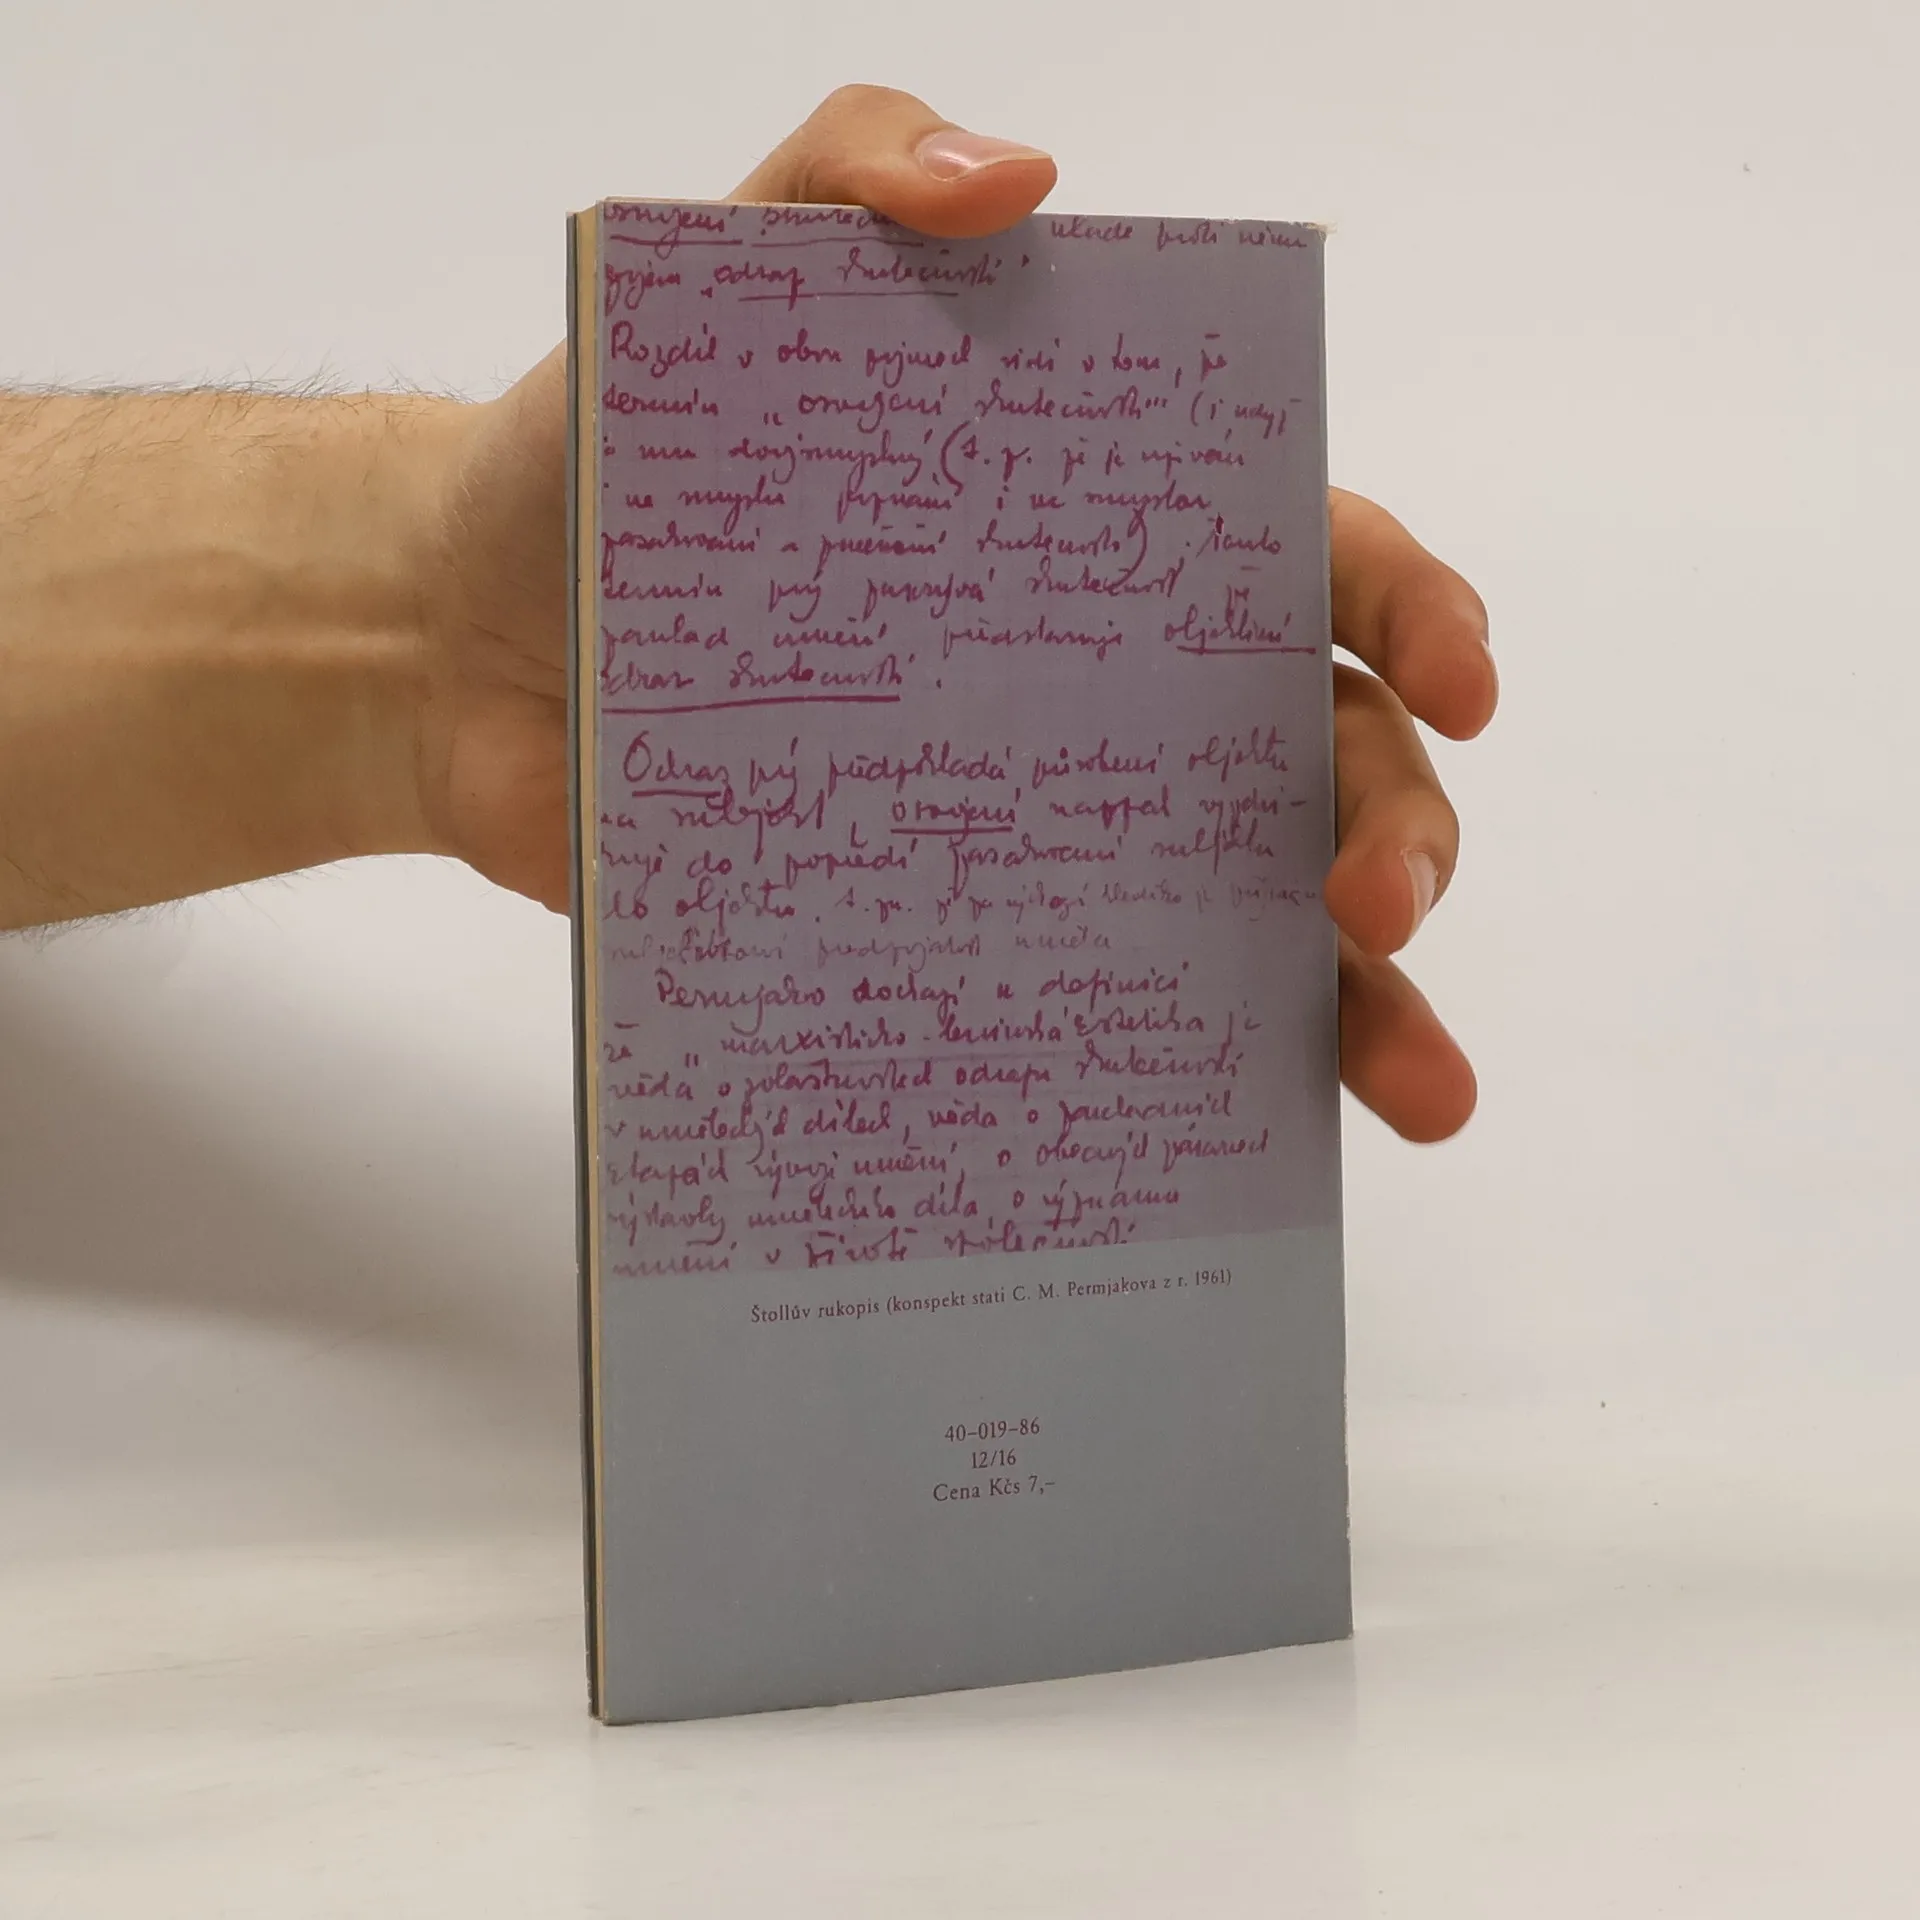 osvojení skuteč klade proti němu
pojem „odraz skutečnosti"
Rozdíl v obou pojmech vidí v tom, že
termín „osvojení skutečnosti" (i když
je mu dvojsmyslný (t. zn. že je užíván
i ve smyslu poznání i ve smyslu
zasahování a skutečnosti). Tento
termín prý zakrývá skutečnost že
základ umění představuje objektivní
odraz skutečnosti.
Odraz prý předpokládá působení objektu
na subjekt, osvojení naopak vyzdvi-
huje do popředí zasahování subjektu
do objektu, t. zn. že za východí hledisko je
umělce
Permjakov dochází k definici
že „marxisticko-leninská estetika je
věda o zvláštnostech odrazu skutečnosti
v uměleckých dílech, věda o základních
etapách vývoje umění, o obecných zákonech
výstavby uměleckého díla, o významu
umění v životě společnosti
Štollův rukopis (konspekt stati C. M. Permjakova z r. 1961)
40-019-86
12/16
Cena Kčs 7,–